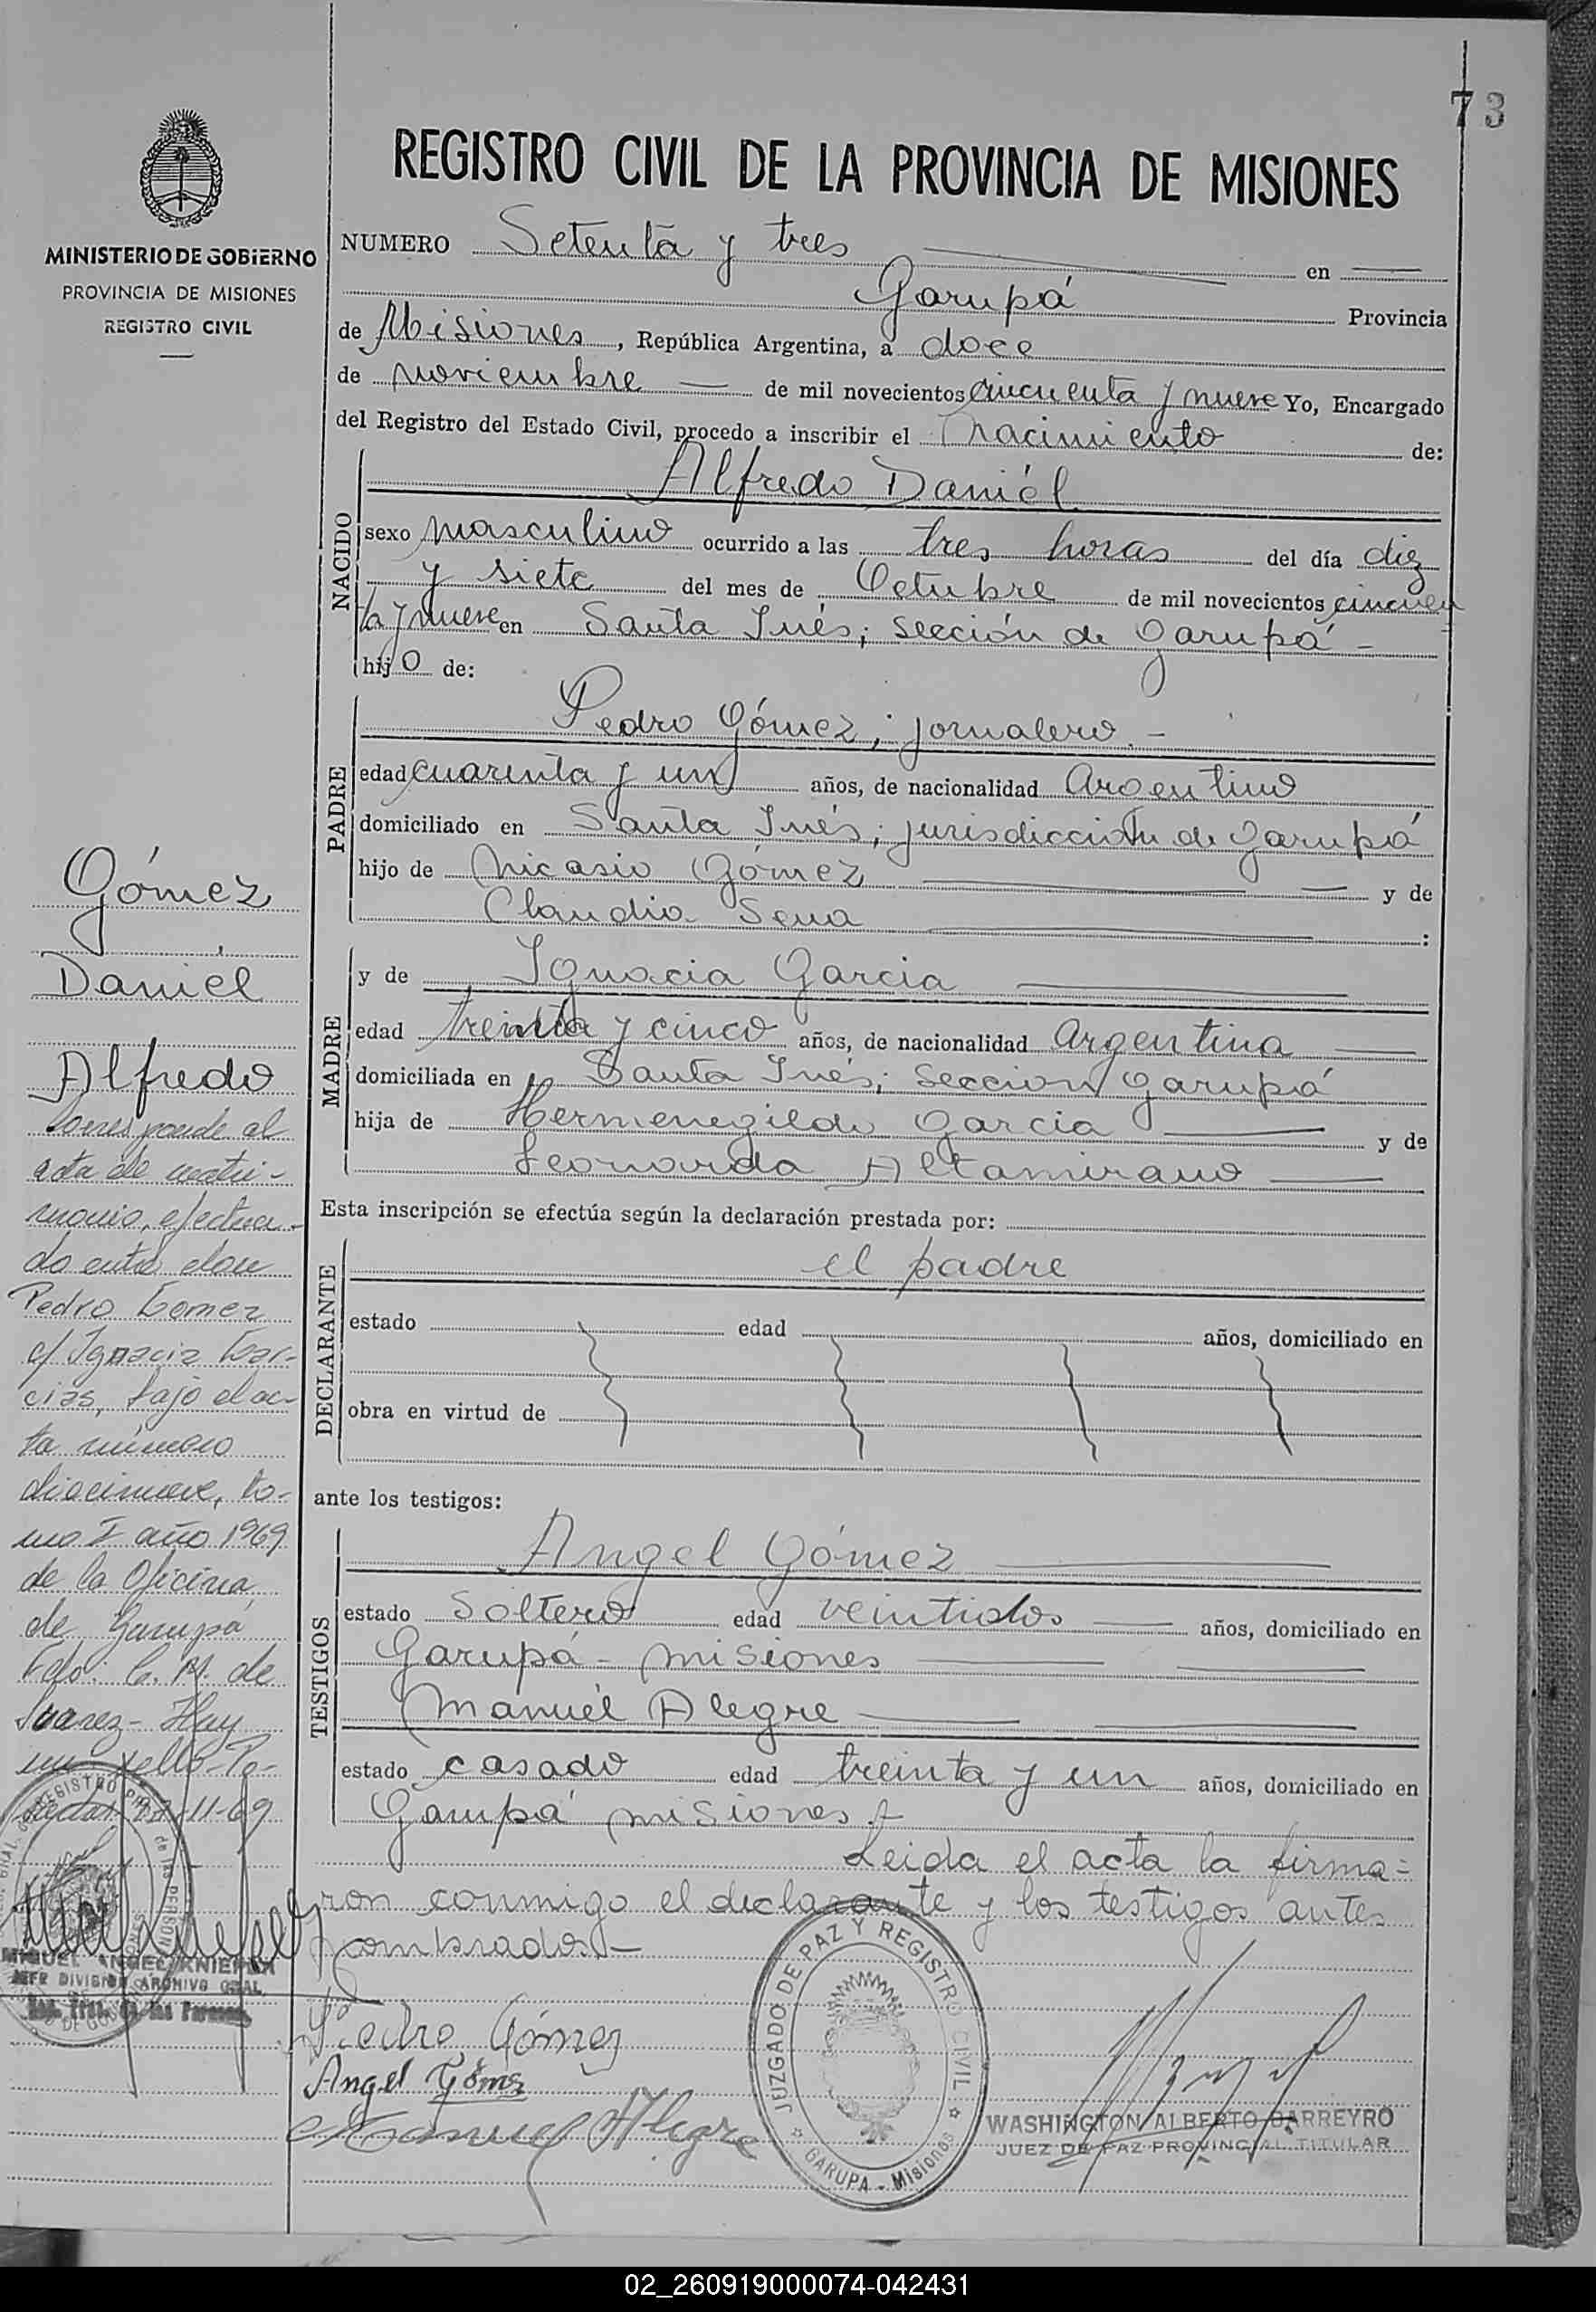 73
REGISTRO CIVIL DE LA PROVINCIA DE MISIONES
MINISTERIO DE GOBIERNO
PROVINCIA DE MISIONES
REGISTRO CIVIL
NUMERO Setenta y tres en
Garupá Provincia
de Misiones, República Argentina, a doce
de noviembre de mil novecientos cincuenta y nueve Yo, Encargado
del Registro del Estado Civil, procedo a inscribir el nacimiento de:
NACIDO
Alfredo Daniel
sexo masculino ocurrido a las tres horas del día diez
y siete del mes de Octubre de mil novecientos cincuen
ta y nueve en Santa Inés; sección de Garupá -
hijo de:
PADRE
Pedro Gómez; jornalero. -
edad cuarenta y un años, de nacionalidad Argentino
domiciliado en Santa Inés; jurisdicción de Garupá
hijo de Nicasio Gómez y de
Claudia Sena :
MADRE
y de Ignacia Garcia
edad treinta y cinco años, de nacionalidad Argentina
domiciliada en Santa Inés; Seccion Garupá
hija de Hermenegildo Garcia y de
Leonarda Altamirano
Esta inscripción se efectúa según la declaración prestada por:
DECLARANTE
el padre
estado edad años, domiciliado en
obra en virtud de
ante los testigos:
TESTIGOS
Angel Gómez
estado Soltero edad veintidos años, domiciliado en
Garupá - misiones
Manuel Alegre
estado casado edad treinta y un años, domiciliado en
Garupá misiones.-
Leida el acta la firma=
ron conmigo el declarante y los testigos antes
nombrados.-
Pedro Gómez
Angel Gómez
Manuel Alegre
JUZGADO DE PAZ Y REGISTRO CIVIL
GARUPA - Misiones
WASHINGTON ALBERTO BARREYRO
JUEZ DE PAZ PROVINCIAL TITULAR
Gómez
Daniel
Alfredo
Corresponde al
acta de matri-
monio, efectua-
do entre don
Pedro Gomez
c/ Ignacia Gar-
cias, bajo el ac-
ta número
diecinueve, to-
mo I año 1969
de la Oficina
de Garupá
Fdo: C. M. de
Suarez- Hay
un sello-Po-
11-69
MIGUEL ANGEL KNIEPER
JEFE DIVISION ARCHIVO GRAL.
02_260919000074-042431